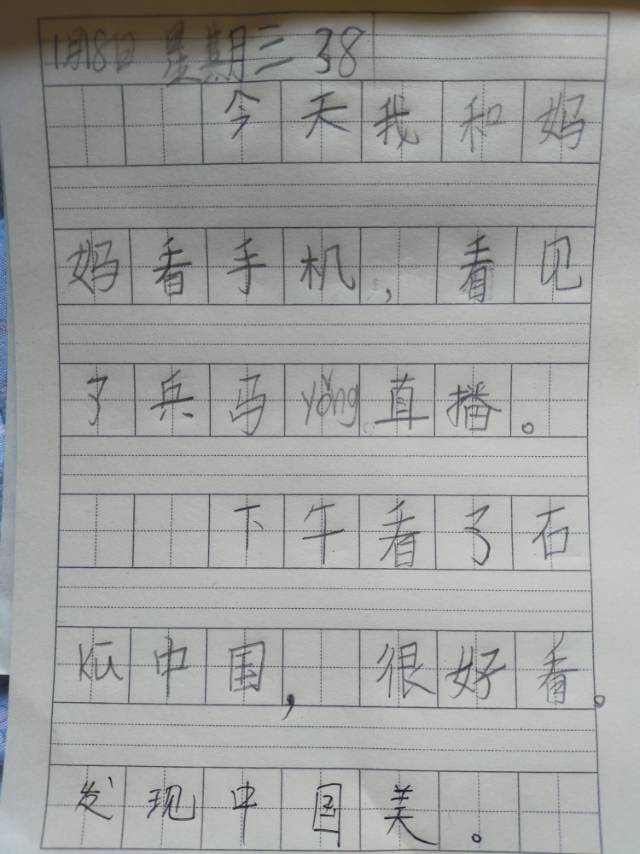 1月8日 星期三 38
今天我和妈
妈看手机，看见
了兵马yǒng直播。
下午看了石
Kū中国，很好看。
发现中国美。